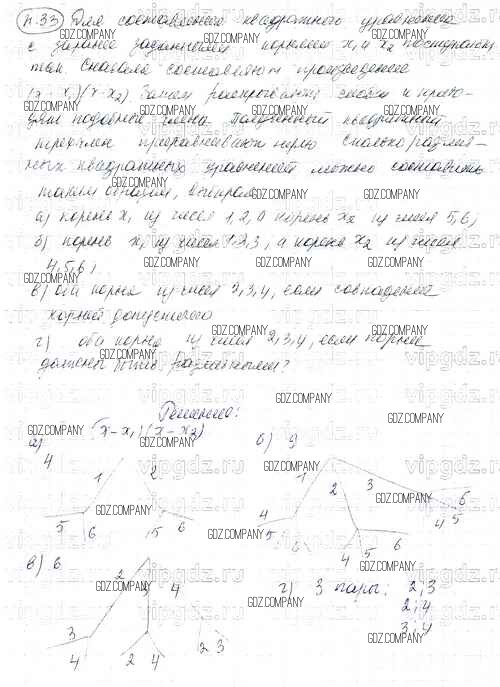 п.33 Для составления квадратного уравнения
с заранее заданными корнями x₁ и x₂ поступают
так. Сначала составляют произведение
(x - x₁)(x - x₂) Затем раскрывают скобки и приво-
дят подобные члены. Полученный квадратный
трехчлен приравнивают нулю Сколько различ-
ных квадратных уравнений можно составить
таким образом, выбирая
а) корень x₁ из чисел 1, 2, а корень x₂ из чисел 5, 6;
б) корень x₁ из чисел 1, 2, 3, а корень x₂ из чисел
4, 5, 6;
в) оба корня из чисел 2, 3, 4, если совпадение
корней допустимо
г) оба корня из чисел 2, 3, 4, если корни
должны быть различными?
Решение:
(x - x₁)(x - x₂)
а) 4
1 2
5 6 5 6
б) 9
1 2 3
4 5 6 4 5 6 4 5 6
в) 6
2 3 4
3 4 2 4 2 3
г) 3 пары: 2; 3
2; 4
3; 4
GDZ.COMPANY
vipgdz.ru